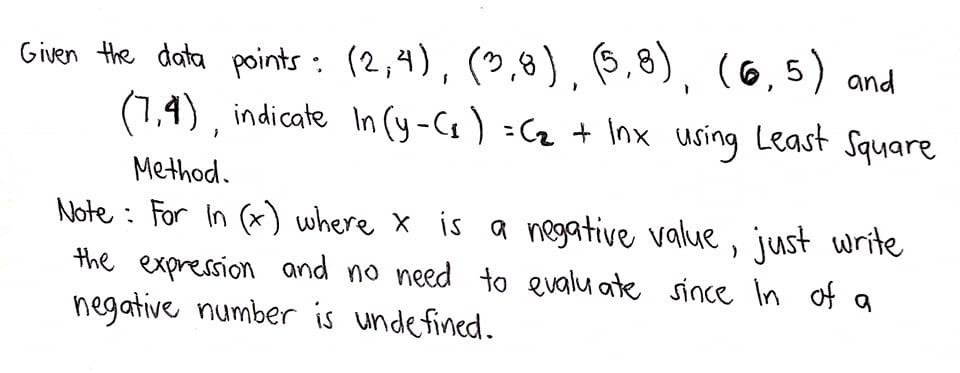 Given the data points : (2,4), (3,8), (5,8), (6,5) and
(7,4), indicate ln(y-C₁) = C₂ + lnx using Least Square
Method.
Note : For ln (x) where x is a negative value, just write
the expression and no need to evaluate since ln of a
negative number is undefined.